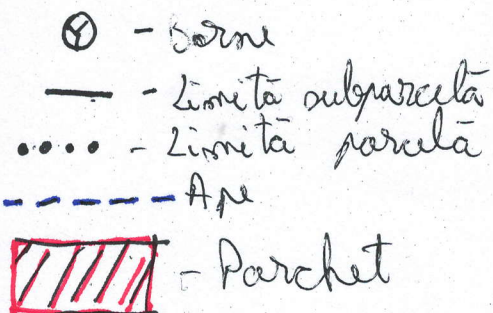 Y - Borne
- Limită subparcelă
- Limită parcelă
Ape
- Parchet